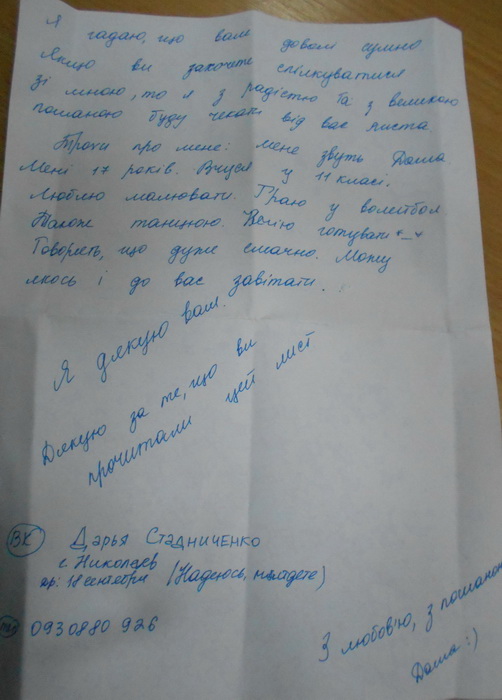 Я гадаю, що вам доволі сумно
Якщо ви захочите спілкуватися
зі мною, то я з радістю та з великою
пошаною буду чекати від вас листа.
Трохи про мене: мене звуть Даша
Мені 17 років. Вчуся у 11 класі.
Люблю малювати. Граю у волейбол
Також танцюю. Вмію готувати
Говорять, що дуже смачно. Можу
якось і до вас завітати.
Я дякую вам.
Дякую за те, що ви
прочитали цей лист
ВК Дарья Стадниченко
г. Николаев
др: 18 сентября (Надеюсь, найдете)
0930880926
З любов'ю, з пошаною
Даша :)